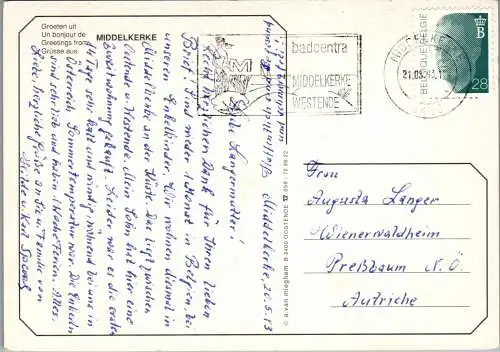 Groeten uit
Un bonjour de
Greetings from
Grüsse aus
MIDDELKERKE
Middelkerke, 20.5.93
Liebe Langermutter!
Recht herzlichen Dank für Ihren lieben
Brief! Sind wieder 1 Monat in Belgien, bei
unseren Enkelkinder. Wir wohnen diesmal in
Middelkerke an der Küste. Das liegt zwischen
Oostende u. Westende. Mein Sohn hat hier eine
Zweitwohnung gekauft. Leider war es die ersten
14 Tage sehr kalt und windig, während bei uns in
Österreich Sommertemperatur war. Die Enkeln
sind sehr lieb und haben 1 Woche Ferien. Alles
Liebe, herzliche Grüße an Sie u. Familie von
Heide u. Karl
badcentra
MIDDELKERKE
WESTENDE
21.05.93
BELGIQUE BELGIE
B
28
© a. van mieghem B-8400 OOSTENDE
Frau
Augusta Langer
Wienerwaldheim
Preßbaum N.Ö.
Autriche